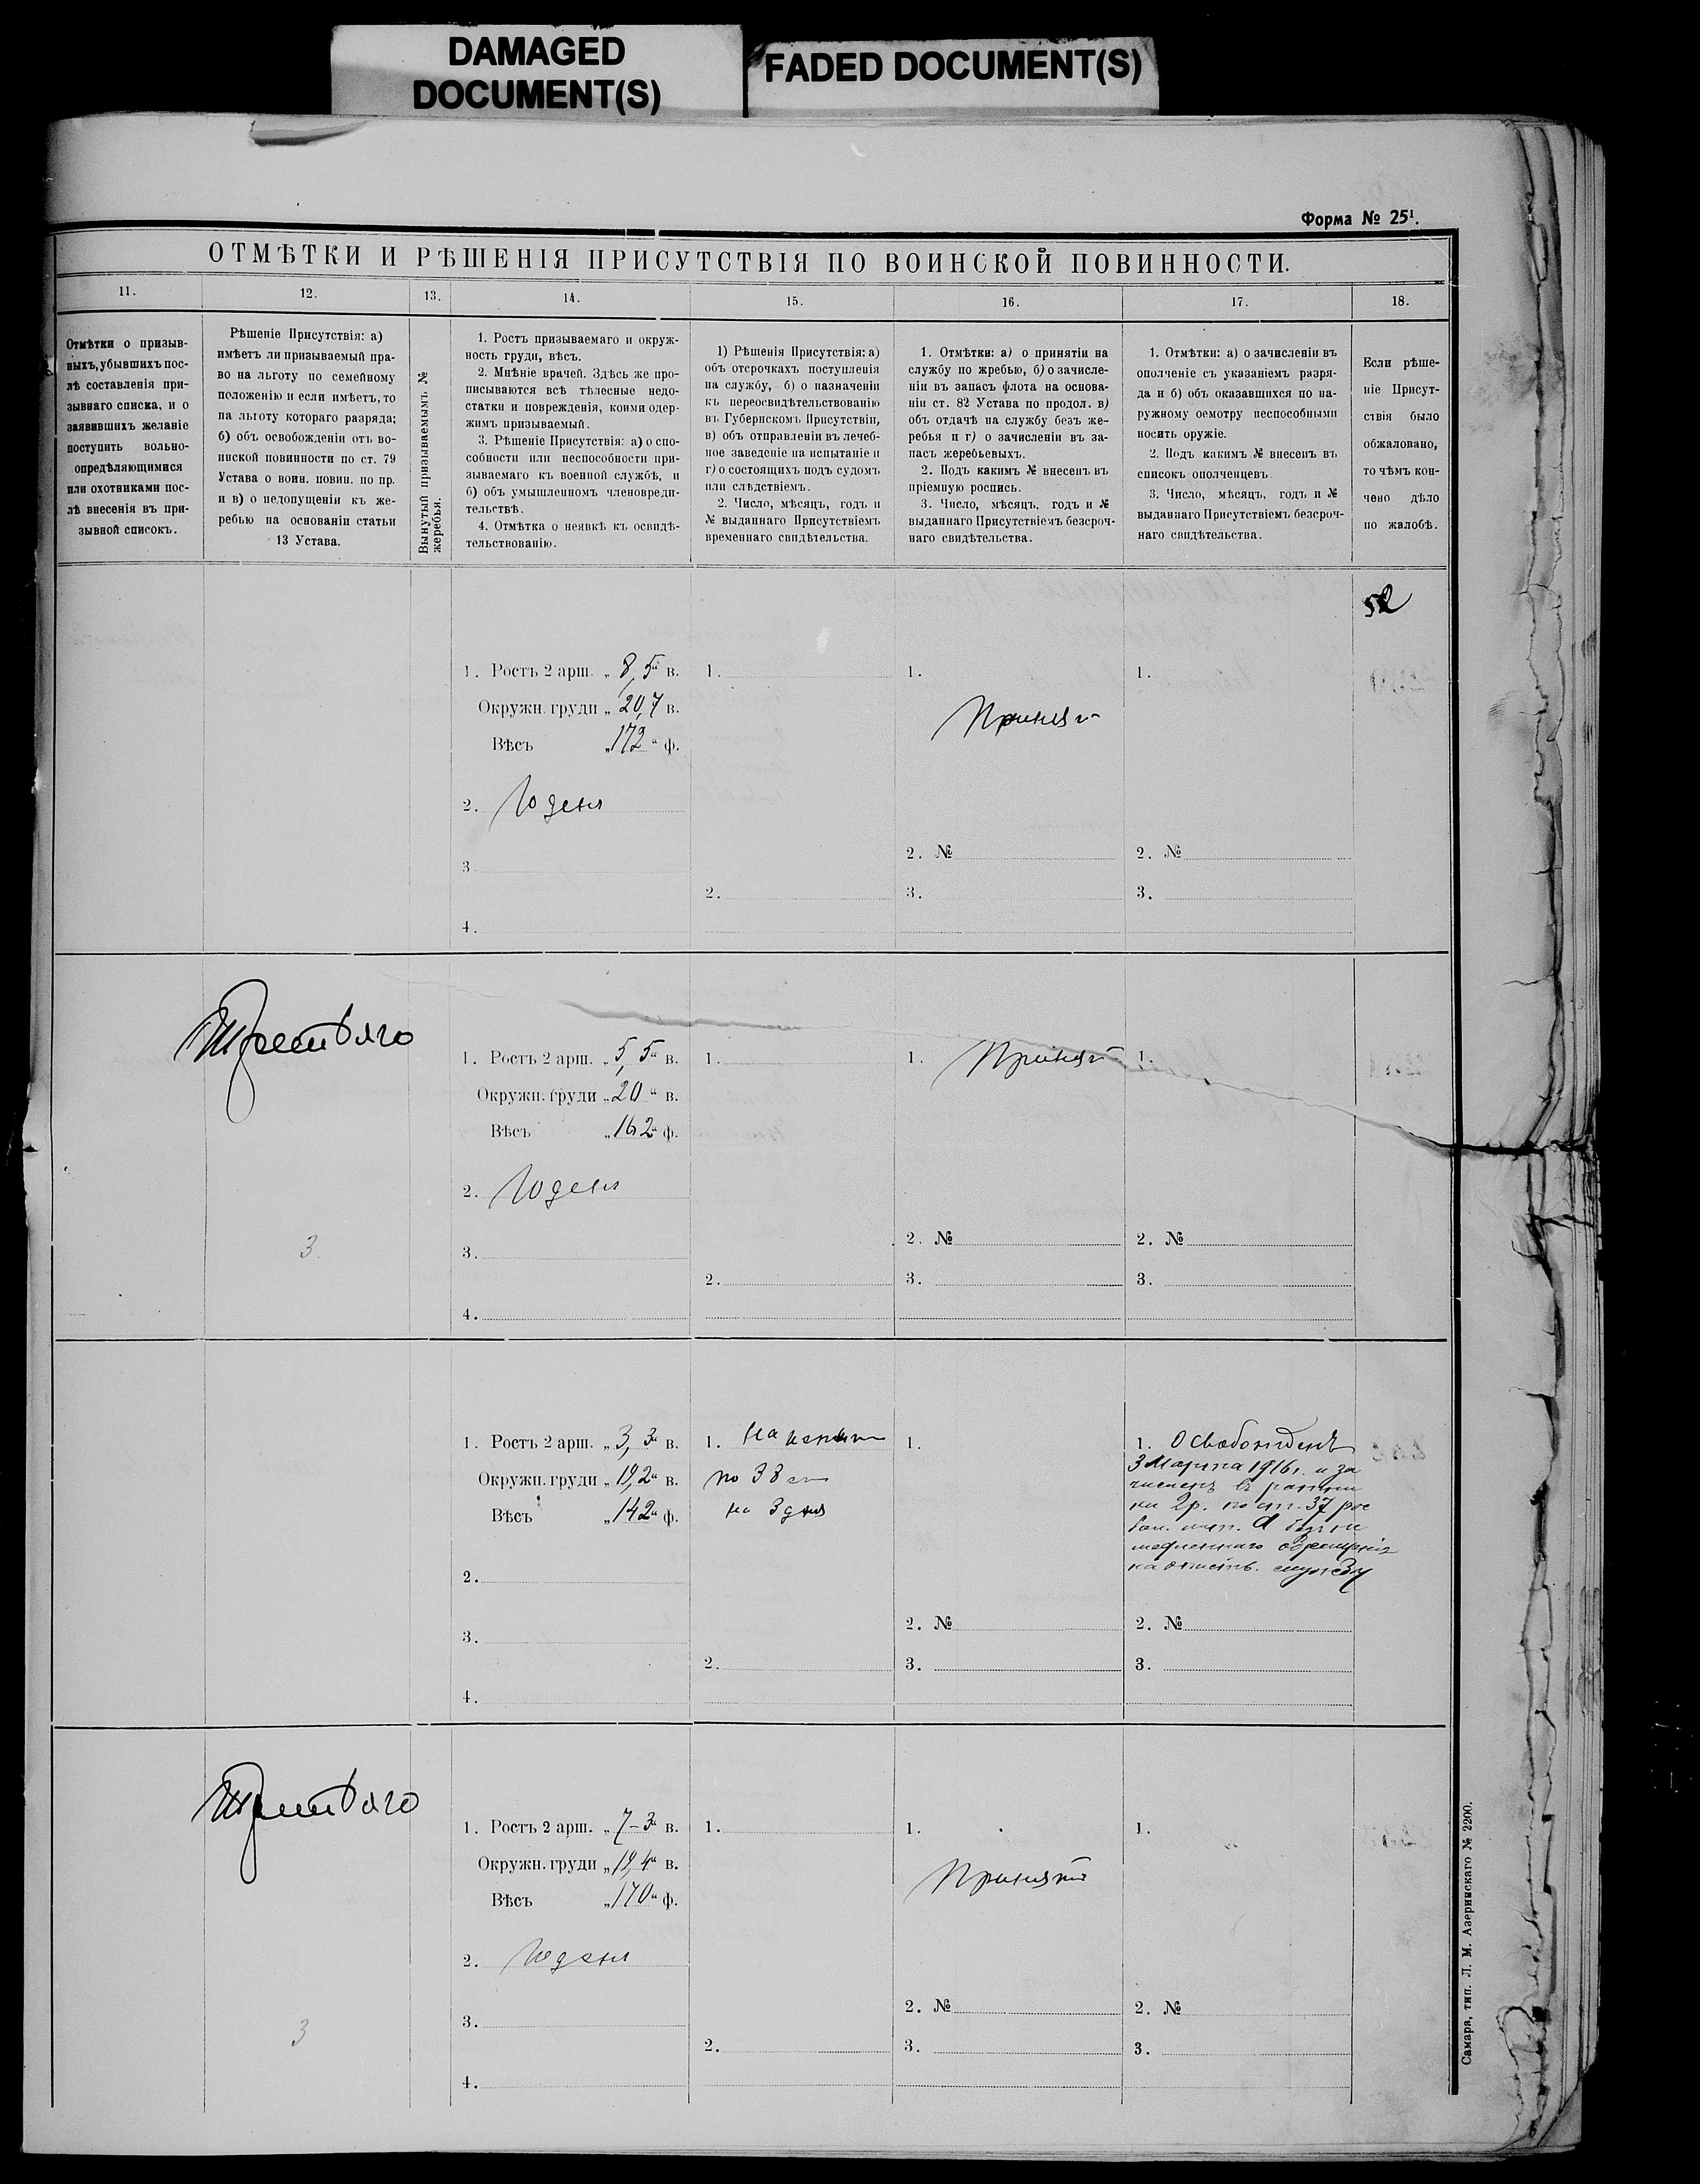 DAMAGED
DOCUMENT(S)
FADED DOCUMENT(S)
Форма № 25¹.
ОТМѢТКИ И РѢШЕНІЯ ПРИСУТСТВІЯ ПО ВОИНСКОЙ ПОВИННОСТИ.
11.
12.
13.
14.
15.
16.
17.
18.
Отмѣтки о призыв-
ныхъ, убывшихъ пос-
лѣ составленія при-
зывнаго списка, и о
заявившихъ желаніе
поступить вольно-
опредѣляющимися
или охотниками пос-
лѣ внесенія въ при-
зывной списокъ.
Рѣшеніе Присутствія: а)
имѣетъ ли призываемый пра-
во на льготу по семейному
положенію и если имѣетъ, то
на льготу котораго разряда;
б) объ освобожденіи отъ во-
инской повинности по ст. 79
Устава о воин. повин. по пр.
и в) о недопущеніи къ же-
ребью на основаніи статьи
13 Устава.
Вынутый призываемымъ №
жеребья.
1. Ростъ призываемаго и окруж-
ность груди, вѣсъ.
2. Мнѣніе врачей. Здѣсь же про-
писываются всѣ тѣлесные недо-
статки и поврежденія, коими одер-
жимъ призываемый.
3. Рѣшеніе Присутствія: а) о спо-
собности или неспособности при-
зываемаго къ военной службѣ, и
б) объ умышленномъ членовреди-
тельствѣ.
4. Отмѣтка о неявкѣ къ освидѣ-
тельствованію.
1) Рѣшенія Присутствія: а)
объ отсрочкахъ поступленія
на службу, б) о назначеніи
къ переосвидѣтельствованію
въ Губернскомъ Присутствіи,
в) объ отправленіи въ лечеб-
ное заведеніе на испытаніе и
г) о состоящихъ подъ судомъ
или слѣдствіемъ.
2. Число, мѣсяцъ, годъ и
№ выданнаго Присутствіемъ
временнаго свидѣтельства.
1. Отмѣтки: а) о принятіи на
службу по жребью, б) о зачисле-
ніи въ запасъ флота на основа-
ніи ст. 82 Устава по продол. в)
объ отдачѣ на службу безъ же-
ребья и г) о зачисленіи въ за-
пасъ жеребьевыхъ.
2. Подъ какимъ № внесенъ въ
пріемную роспись.
3. Число, мѣсяцъ, годъ и №
выданнаго Присутствіемъ безсроч-
наго свидѣтельства.
1. Отмѣтки: а) о зачисленіи въ
ополченіе съ указаніемъ разря-
да и б) объ оказавшихся по на-
ружному осмотру неспособными
носить оружіе.
2. Подъ какимъ № внесенъ въ
списокъ ополченцевъ.
3. Число, мѣсяцъ, годъ и №
выданнаго Присутствіемъ безсроч-
наго свидѣтельства.
Если рѣше-
ніе Присут-
ствія было
обжаловано,
то чѣмъ кон-
чено дѣло
по жалобѣ.
52
1. Ростъ 2 арш. „8,5" в.
Окружн. груди „20,7 в.
Вѣсъ „172" ф.
2. Годенъ
3.
4.
1.
2.
1.
Принят
2. №
3.
1.
2. №
3.
Третьяго
3
1. Ростъ 2 арш. „5,5" в.
Окружн. груди „20" в.
Вѣсъ „162" ф.
2. Годенъ
3.
4.
1.
2.
1. Принят
2. №
3.
1.
2. №
3.
1. Ростъ 2 арш. „3,3" в.
Окружн. груди „19,2" в.
Вѣсъ „142" ф.
2.
3.
4.
1. На испыт
по 38 ст
на 3 дня
2.
1.
2. №
3.
1. Освобожденъ
3 Марта 1916 г. и за
численъ въ ратни
ки 2р. по ст. 37 рос
на дѣйств. службу
2. №
3.
Третьяго
3
1. Ростъ 2 арш. „7–3" в.
Окружн. груди „19,4" в.
Вѣсъ „170" ф.
2. Годенъ
3.
4.
1.
2.
1.
Принятъ
2. №
3.
1.
2. №
3.
Самара, тип. Л. М. Азеринскаго № 2200.